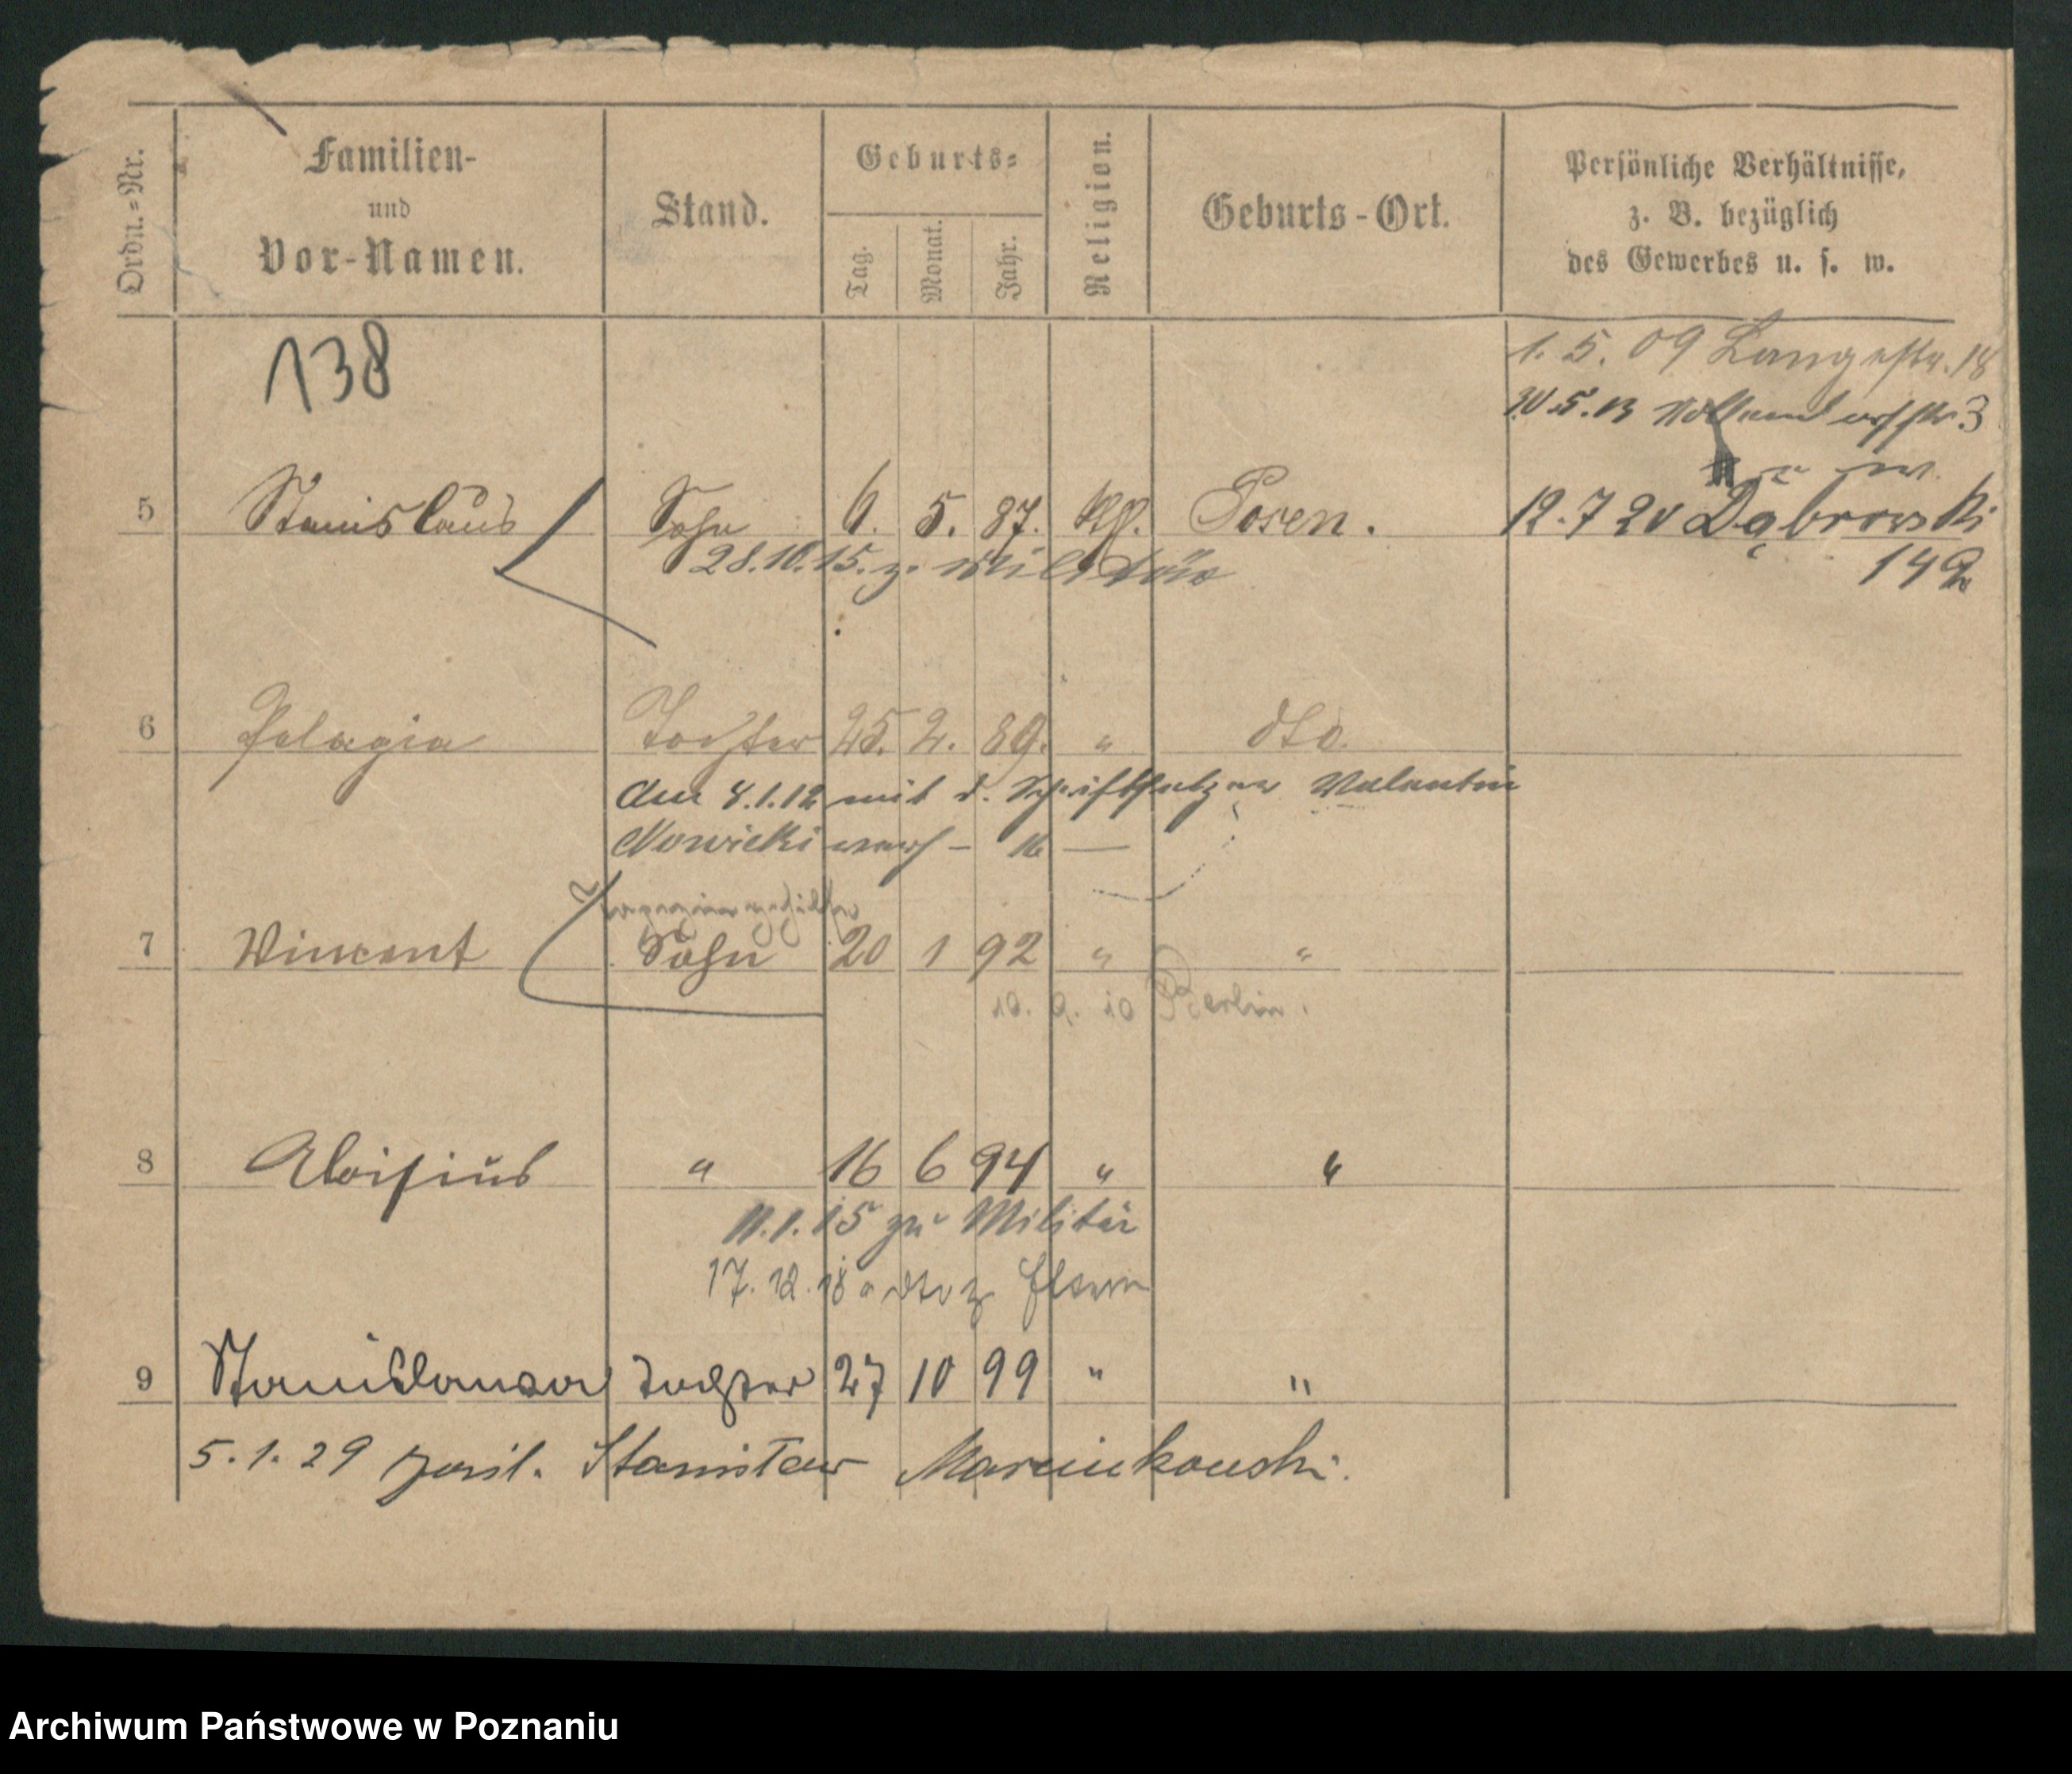 Ordn.=Nr.
Familien-
und
Vor-Namen.
Stand.
Geburts=
Tag.
Monat.
Jahr.
Religion.
Geburts-Ort.
Persönliche Verhältnisse,
z. B. bezüglich
des Gewerbes u. s. w.
138
1. 5. 09 Langestr. 18
5 Stanislaus Sohn 6. 5. 87. Posen. 12.7 20 Dąbrowski
28.10.15. z. Militär 142
6 Pelagia Tochter 25. 2. 89. " dto.
den 8.1.12 mit d. Schriftsetzer Valentin
Nowicki verh —
7 Wincent Sohn 20 1 92 " "
10. 9. 10 Berlin.
8 Aloisius " 16 6 94 " "
11.1.15 zu Militär
17.12.18 a dto z Eltern
9 Stanislawa Tochter 27 10 99 " "
5.1.29 Stanisław Marcinkowski.
Archiwum Państwowe w Poznaniu